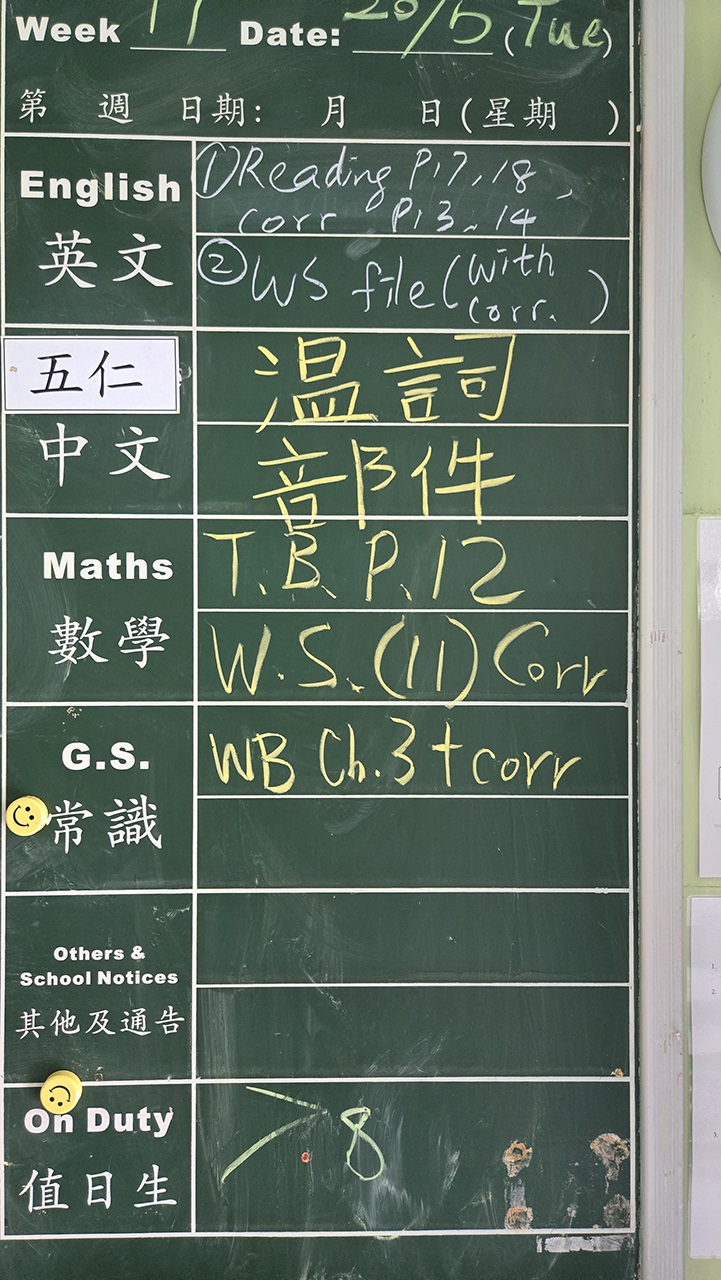 Week 17 Date: 20/5 (Tue)
第 週 日期: 月 日(星期 )
English
英文
①Reading P.17,18,
corr P.13,14
②WS file(with corr.)
五仁
中文
温詞
部件
Maths
數學
T.B. P.12
W.S.(11)Corr
G.S.
常識
WB Ch.3+corr
Others &
School Notices
其他及通告
On Duty
值日生
8